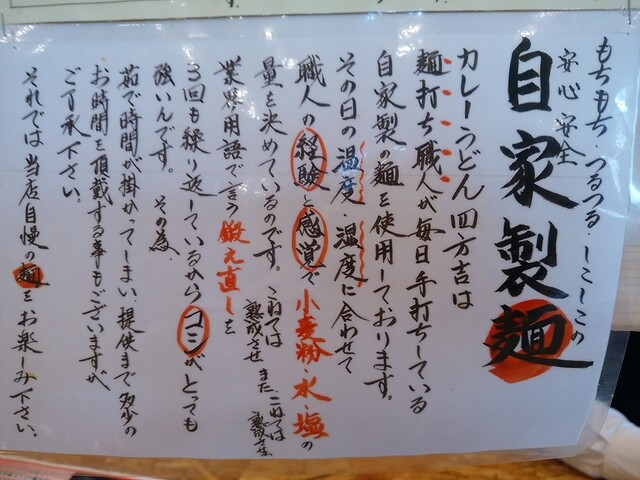 もちもち・つるつる・しこしこの
安心 安全
自家製麺
カレーうどん四方吉は
麺打ち職人が毎日手打ちしている
自家製の麺を使用しております。
その日の温度・湿度に合わせて
職人の経験と感覚で小麦粉・水・塩の
量を決めているのです。こねては
熟成させ また、こねては
熟成させ
業界用語で言う鍛え直しを
3回も繰り返しているからコシがとっても
強いんです。その為、
茹で時間が掛かってしまい、提供まで多少の
お時間を頂戴する事もございますが、
ご了承下さい。
それでは当店自慢の麺をお楽しみ下さい。